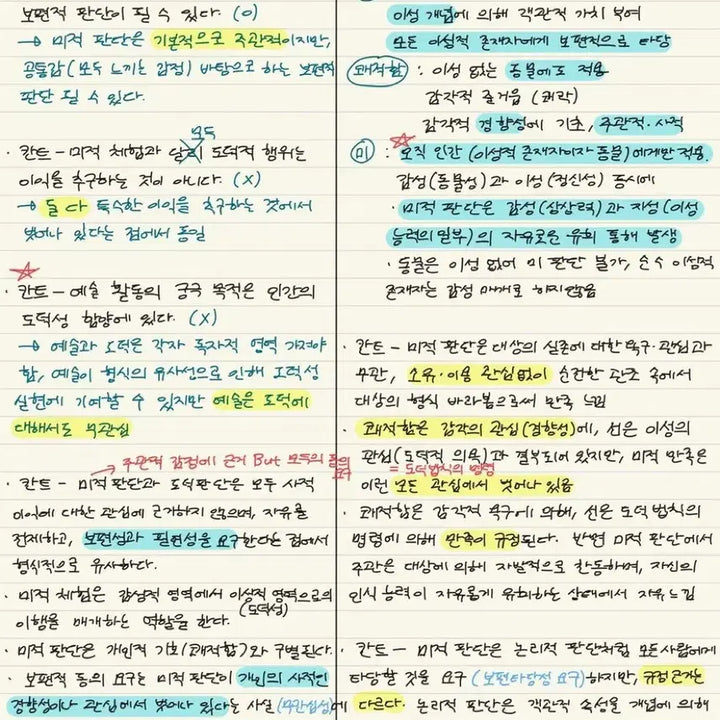 보편적 판단이 될 수 있다. (O)
→ 미적 판단은 기본적으로 주관적이지만,
공통감(모두 느끼는 감정) 바탕으로 하는 보편적
판단 될 수 있다.
모두
· 칸트 - 미적 체험과 도덕적 행위는
이익을 추구하는 것이 아니다. (X)
→ 둘 다 특수한 이익을 추구하는 것에서
벗어나 있다는 점에서 동일
· 칸트 - 예술 활동의 궁극 목적은 인간의
도덕성 함양에 있다. (X)
→ 예술과 도덕은 각자 독자적 영역 가져야
함, 예술이 형식의 유사성으로 인해 도덕성
실현에 기여할 수 있지만 예술은 도덕에
대해서도 무관심
→ 주관적 감정에 근거 But 모두의 동의
요구
· 칸트 - 미적 판단과 도덕판단은 모두 사적
이익에 대한 관심에 근거하지 않으며, 자유를
전제하고, 보편성과 필연성을 요구한다는 점에서
형식적으로 유사하다.
· 미적 체험은 감성적 영역에서 이성적 영역으로의
(도덕성)
이행을 매개하는 역할을 한다.
· 미적 판단은 개인적 기호(쾌적함)와 구별된다.
· 보편적 동의 요구는 미적 판단이 개인의 사적인
경향성이나 관심에서 벗어나 있다는 사실 (무관심성)에
이성 개념에 의해 객관적 가치 부여
모든 이성적 존재자에게 보편적으로 타당
쾌적함 : 이성 없는 동물에도 적용
감각적 즐거움 (쾌락)
감각적 경향성에 기초, 주관적·사적
미 : 오직 인간 (이성적 존재자이자 동물)에게만 적용.
감성(동물성)과 이성(정신성) 동시에
· 미적 판단은 감성(상상력)과 지성(이성
능력의 일부)의 자유로운 유희 통해 발생
· 동물은 이성 없어 미 판단 불가, 순수 이성적
존재자는 감성 매개로 하지 않음
· 칸트 - 미적 판단은 대상의 실존에 대한 욕구·관심과
무관, 소유·이용 관심없이 순전한 관조 속에서
대상의 형식 바라봄으로써 만족 느낌
· 쾌적함은 감각의 관심(경향성)에, 선은 이성의
관심(도덕적 의욕)과 결부되어 있지만, 미적 만족은
= 도덕법칙의 명령
이런 모든 관심에서 벗어나 있음
· 쾌적함은 감각적 욕구에 의해, 선은 도덕 법칙의
명령에 의해 만족이 규정된다. 반면 미적 판단에서
주관은 대상에 의해 자발적으로 활동하며, 자신의
인식 능력이 자유롭게 유희하는 상태에서 자유 느낌
· 칸트 - 미적 판단은 논리적 판단처럼 모든 사람에게
타당할 것을 요구 (보편타당성 요구)하지만, 규정근거는
다르다. 논리적 판단은 객관적 속성을 개념에 의해